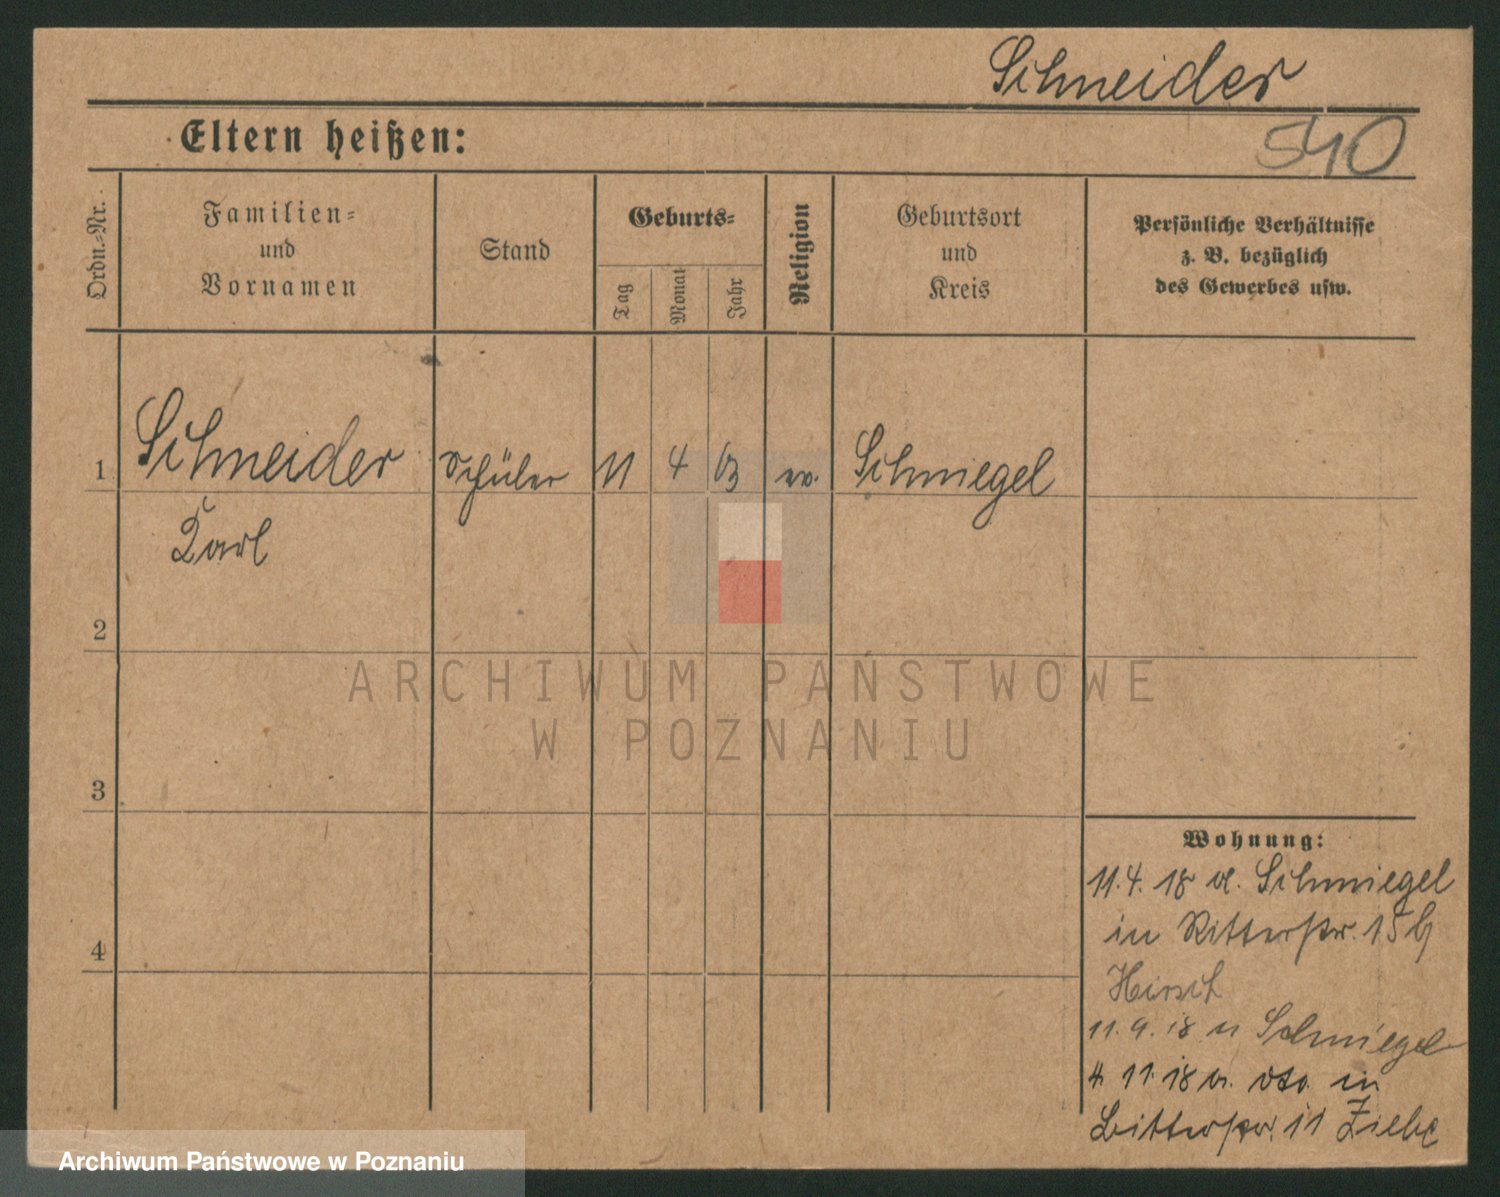 Schneider
540
Eltern heißen:
Ordn.=Nr.
Familien=
und
Vornamen
Stand
Geburts=
Tag
Monat
Jahr
Religion
Geburtsort
und
Kreis
Persönliche Verhältnisse
z. B. bezüglich
des Gewerbes usw.
1 Schneider Schüler 11 4 03 ev. Schmiegel
Karl
2
3
4
Wohnung:
11.4.18 v. Schmiegel
in Ritterstr. 15
Hirsch
11.9.18 n Schmiegel
4.11.18 v. dto. in
Ritterstr. 11 Ziebe
ARCHIWUM PAŃSTWOWE
W POZNANIU
Archiwum Państwowe w Poznaniu